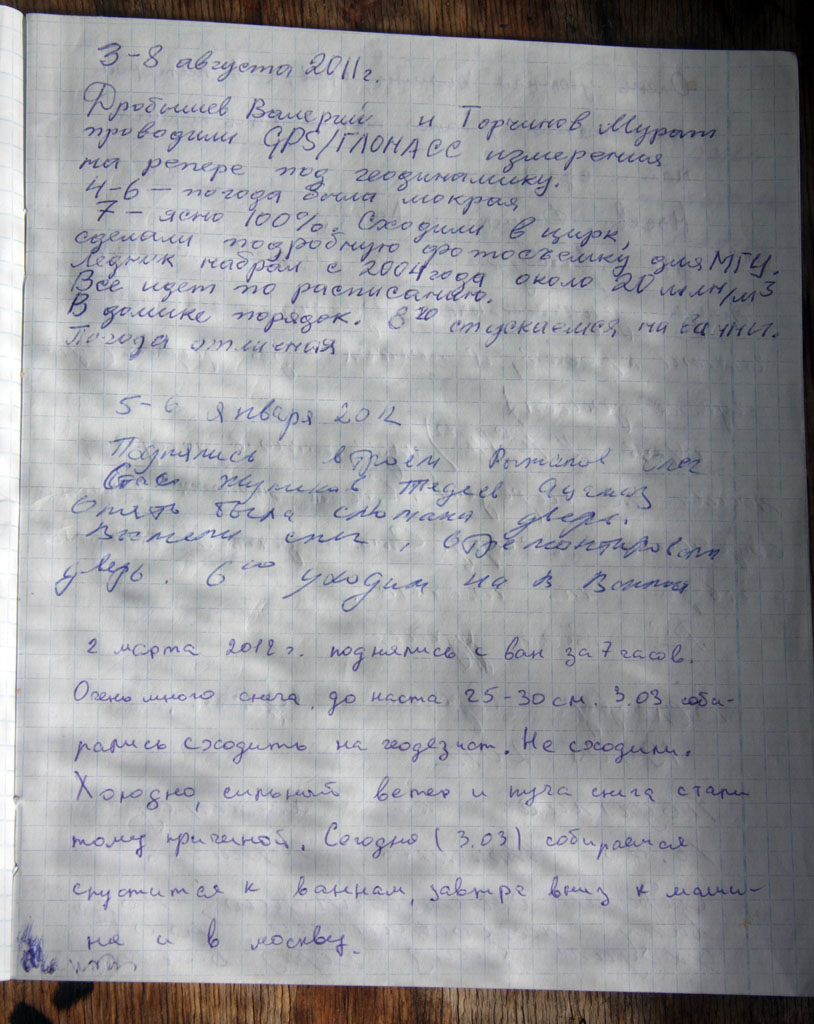 3-8 августа 2011г.
Дробышев Валерий и Торчинов Мурат
проводили GPS/ГЛОНАСС измерения
на репере под геодинамику.
4-6 – погода была мокрая
7 – ясно 100%. Сходили в цирк,
сделали подробную фотосъемку для МГЦ.
Ледник набрал с 2004 года около 20 млн/м³
Все идет по расписанию.
В домике порядок. 8 спускаемся на ванны.
Погода отличная
5-6 января 2012
Поднялись втроём Олег
Стас Тедеев Ацамаз
Опять была сломана дверь.
снег, отремонтировали
дверь. 6⁰⁰ уходим на В Ванны
2 марта 2012 г. поднялись с ван за 7 часов.
Очень много снега, до наста 25-30 см. 3.03 соби-
рались сходить на геодезист. Не сходили.
Холодно, сильный ветер и туча снега стали
тому причиной. Сегодня (3.03) собираемся
спустится к ваннам, завтра вниз к маши-
на и в москву.